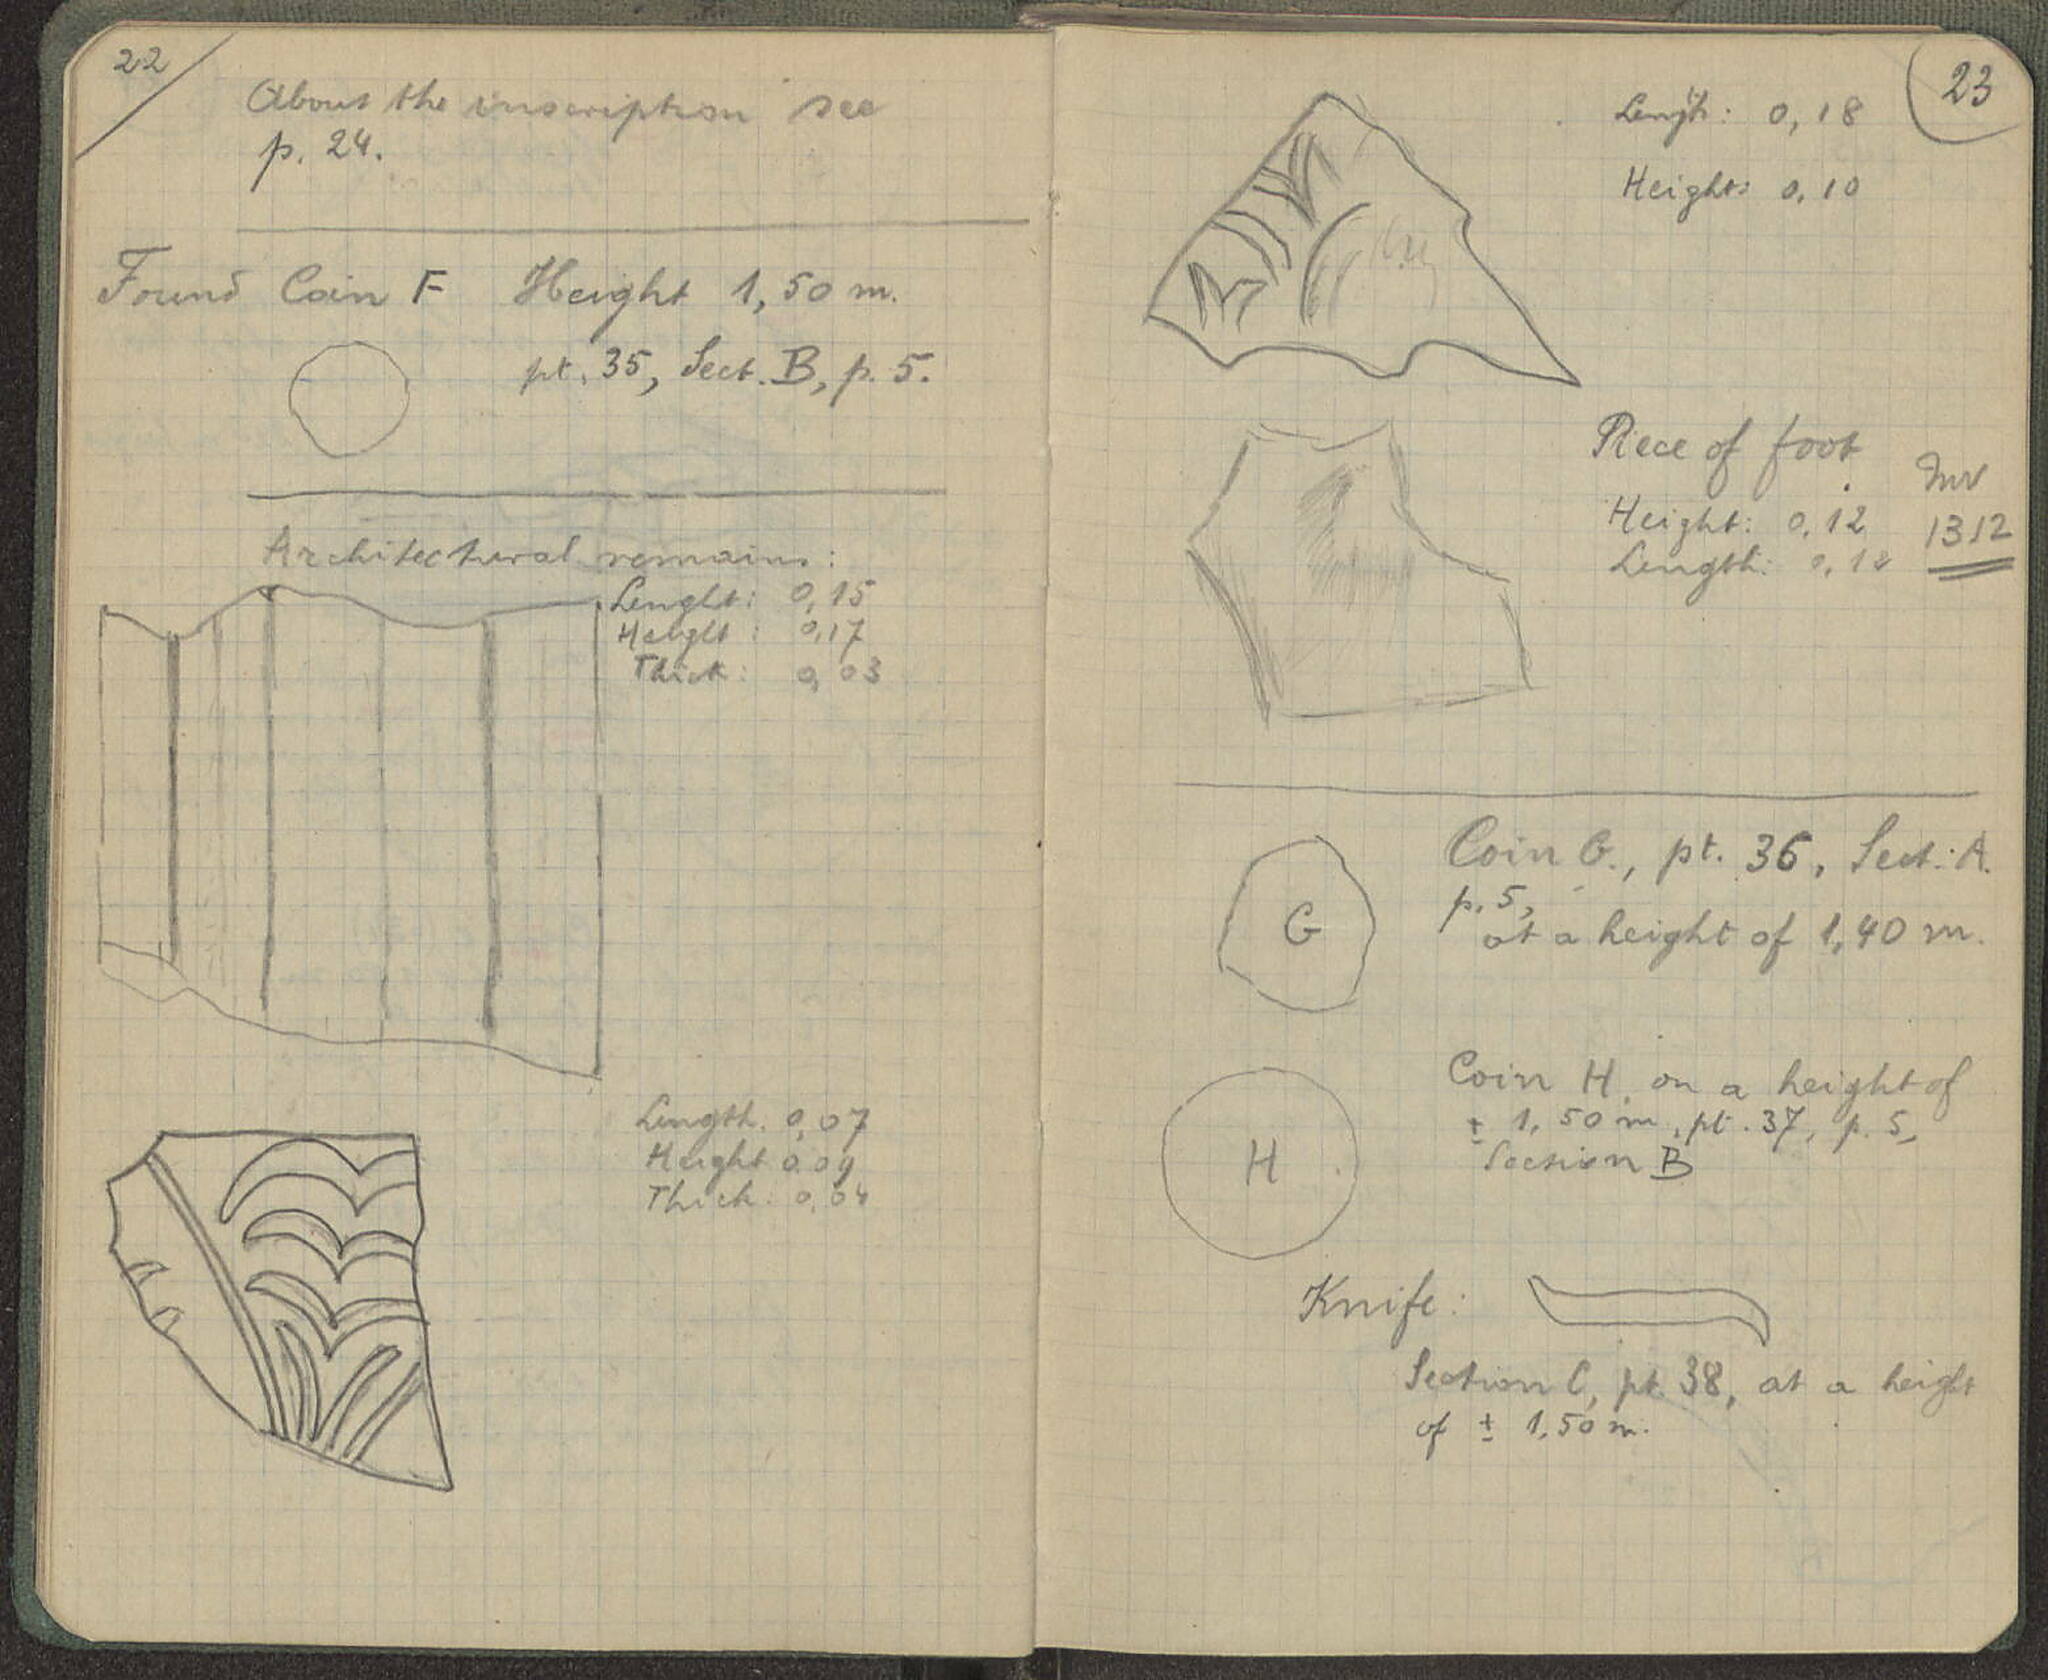 22
About the inscription see
p. 24.
Found Coin F Height 1,50 m.
pt. 35, Sect. B, p. 5.
Architectural remains:
Lenght: 0,15
Height: 0,17
Thick: 0,03
Length. 0,07
Height 0,09
Thick: 0,04
23
Length: 0,18
Height: 0,10
Piece of foot
Inv
1312
Height: 0,12
Length: 0,12
Coin G., pt. 36, Sect. A.
p. 5,
at a height of 1,40 m.
G
Coin H, on a height of
± 1,50 m, pt. 37, p. 5,
Section B
H
Knife:
Section C, pt. 38, at a height
of ± 1,50 m.